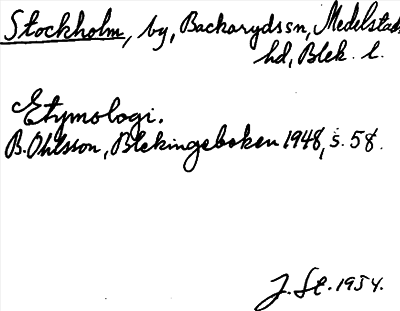 Stockholm, by, Backarydssn, Medelstads
hd, Blek. l.
Etymologi.
B. Ohlsson, Blekingeboken 1948, s. 58.
J. St. 1954.